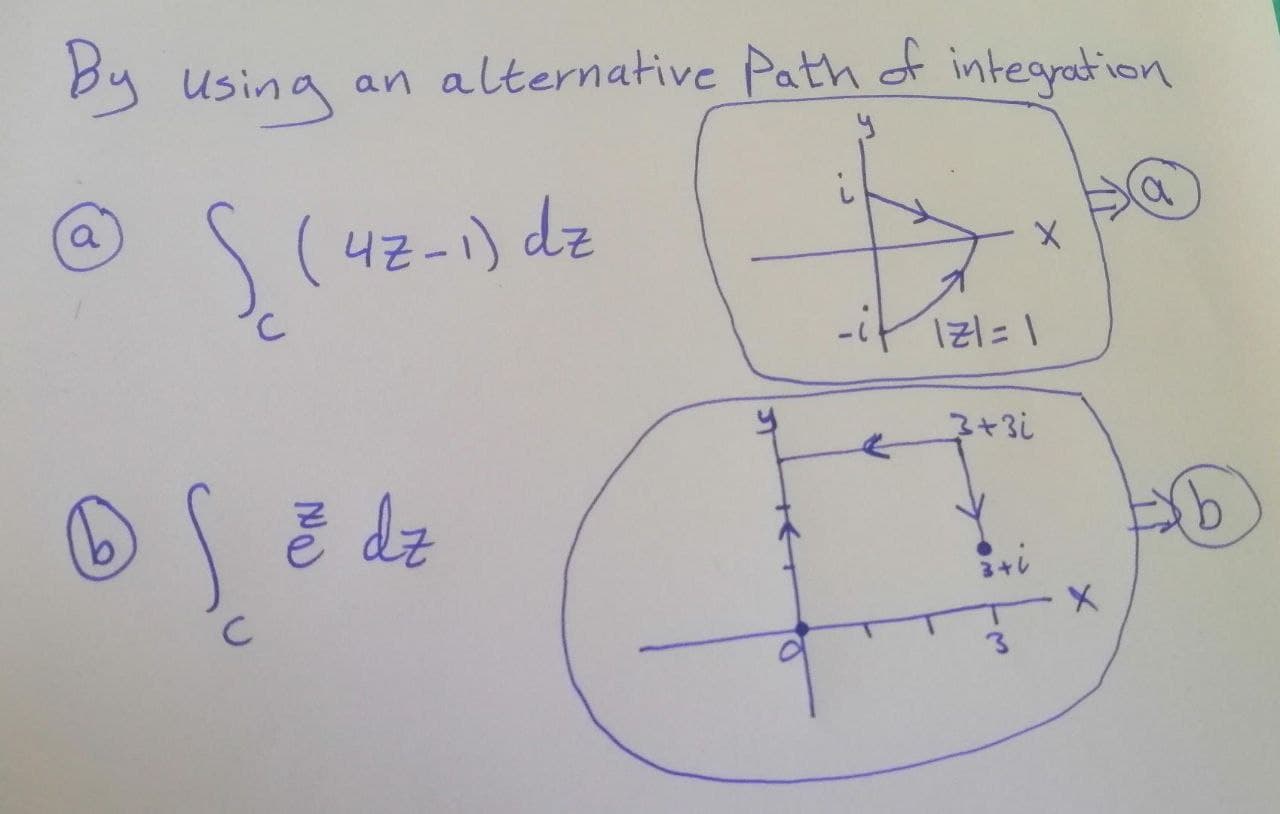 By using an alternative Path of integration
y
i
x
-i
|z|= 1
⇒ⓐ
ⓐ ∫c (4z-1) dz
y
3+3i
3+i
x
0
3
⇒ⓑ
ⓑ ∫c e^z dz